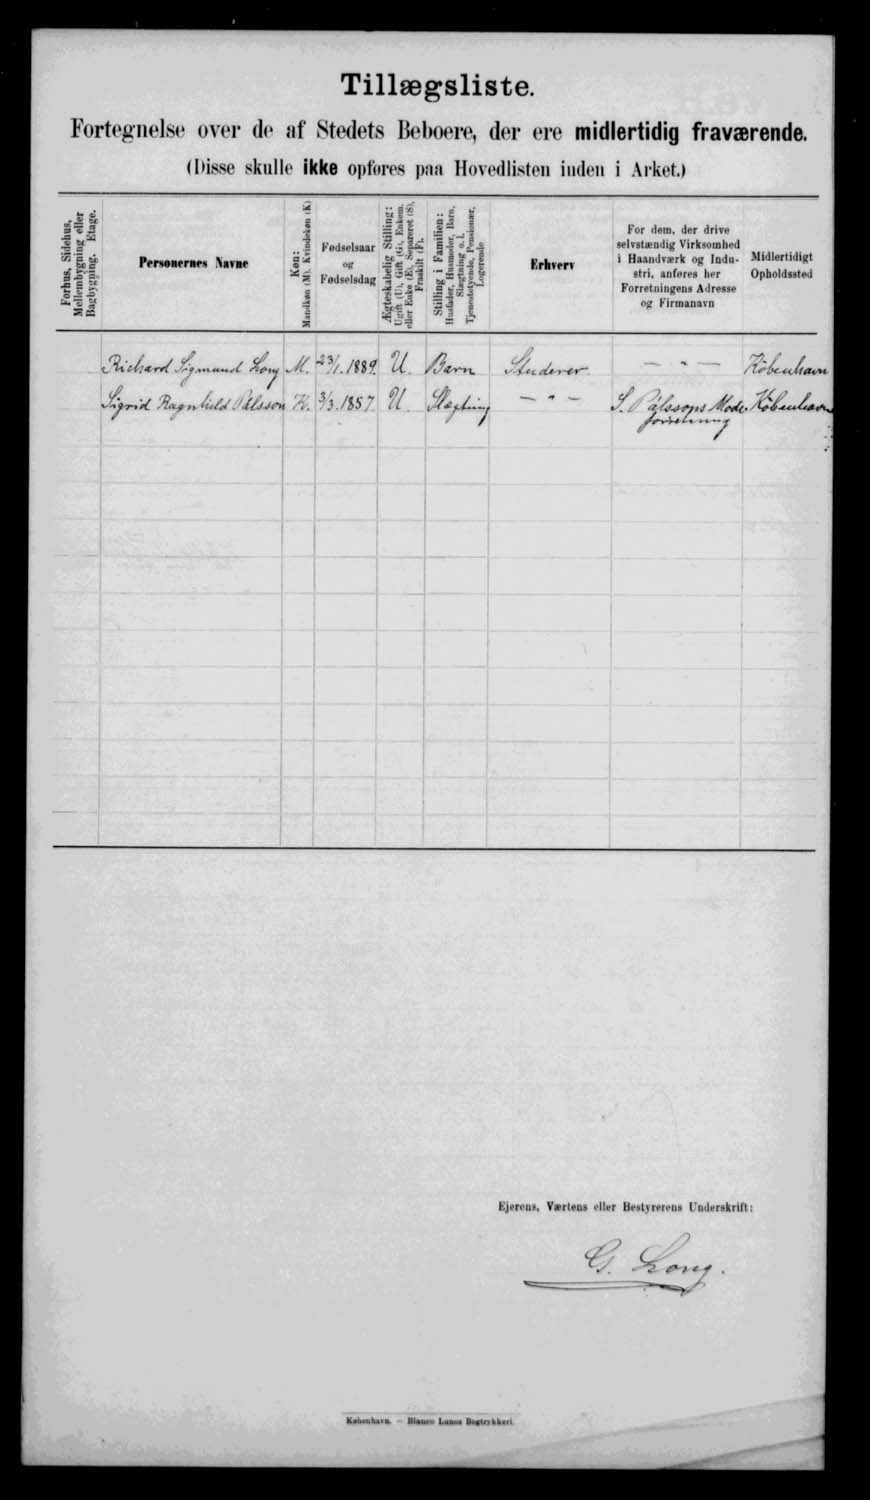 Tillægsliste.
Fortegnelse over de af Stedets Beboere, der ere midlertidig fraværende.
(Disse skulle ikke opføres paa Hovedlisten inden i Arket.)
Forhus, Sidehus,
Mellembygning eller
Bagbygning. Etage.
Personernes Navne
Køn:
Mandkøn (M). Kvindekøn (K)
Fødselsaar
og
Fødselsdag
Ægteskabelig Stilling:
Ugift (U), Gift (G), Enkem.
eller Enke (E), Separeret (S),
Fraskilt (F).
Stilling i Familien:
Husfader, Husmoder, Barn,
Slægtning o. l.
Tjenestetyende, Pensionær,
Logerende
Erhverv
For dem, der drive
selvstændig Virksomhed
i Haandværk og Indu-
stri, anføres her
Forretningens Adresse
og Firmanavn
Midlertidigt
Opholdssted
Richard Sigmund Long M. 23/1. 1889. U. Barn Studerer — " — København
Sigrid Ragnhild Pálsson K. 3/3. 1857. U. Slægtning — " — S. Pálssons Mode- København
forretning
Ejerens, Værtens eller Bestyrerens Underskrift:
G. Long.
København. — Bianco Lunos Bogtrykkeri.